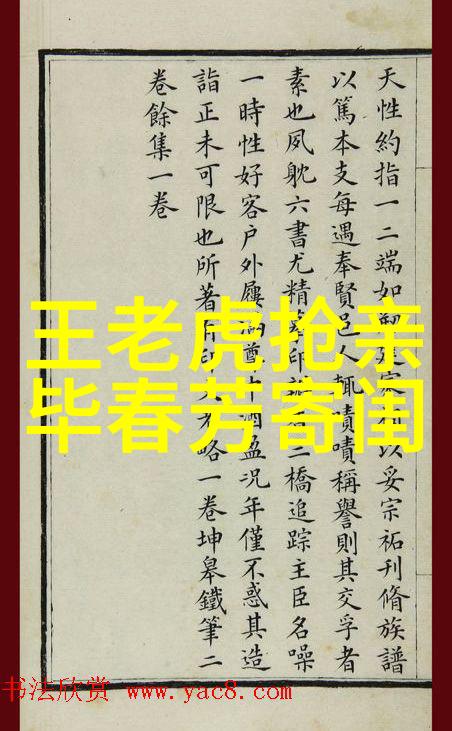 天性約指一二端如以妥宗祏刊脩族譜
以篤本支每遇奉賢邑人輒嘖嘖稱譽則其交孚者
素也夙躭六書尤精篆印二橋追踪主臣名噪
一時性好客户外屨滿尊中酒盈況年僅不惑其造
詣正未可限也所著有印文考略一卷坤皋鐵筆二
卷餘集一卷
王老虎抢亲
毕春芳寄闺
书法欣赏 www.yac8.com